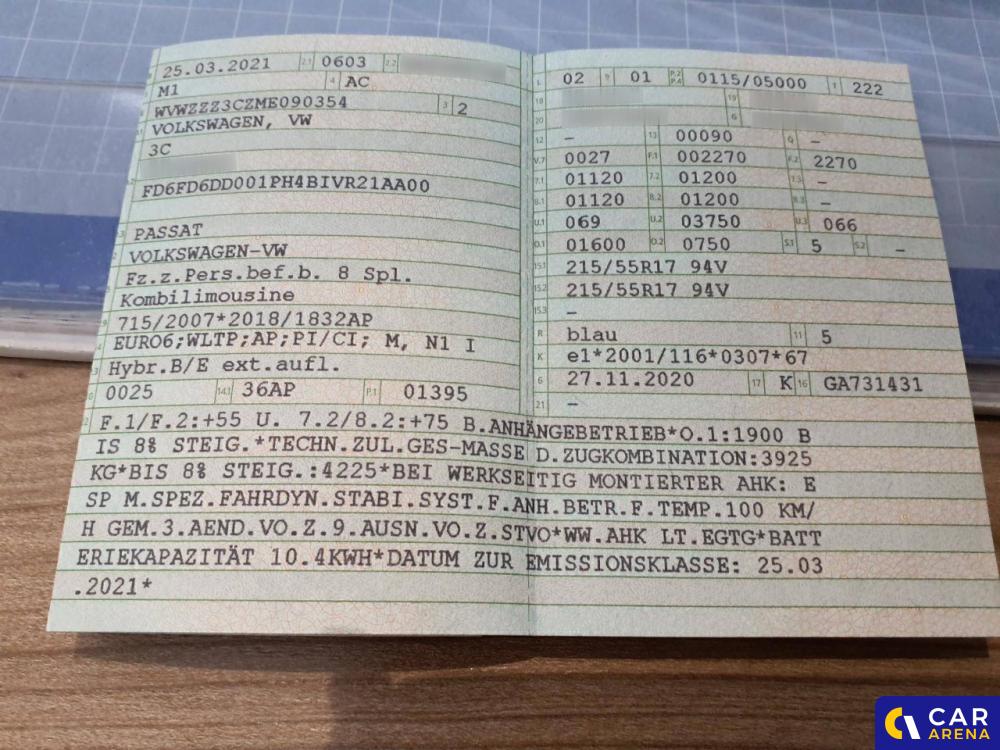 25.03.2021 2.1 0603 2.2
M1 4 AC
WVWZZZ3CZME090354 3 2
VOLKSWAGEN, VW
3C
FD6FD6DD001PH4BIVR21AA00
PASSAT
VOLKSWAGEN-VW
Fz.z.Pers.bef.b. 8 Spl.
Kombilimousine
715/2007*2018/1832AP
EURO6;WLTP;AP;PI/CI; M, N1 I
Hybr.B/E ext.aufl.
0025 14.1 36AP P.1 01395
L 02 9 01 P.2 P.4 0115/05000 T 222
18 19
20 G
12 – 13 00090 Q –
V.7 0027 F.1 002270 F.2 2270
7.1 01120 7.2 01200 7.3 –
8.1 01120 8.2 01200 8.3 –
U.1 069 U.2 03750 U.3 066
O.1 01600 O.2 0750 S.1 5 S.2 –
15.1 215/55R17 94V
15.2 215/55R17 94V
15.3 –
R blau 11 5
K e1*2001/116*0307*67
6 27.11.2020 17 K 16 GA731431
21 –
F.1/F.2:+55 U. 7.2/8.2:+75 B.ANHÄNGEBETRIEB*O.1:1900 B
IS 8% STEIG.*TECHN.ZUL.GES-MASSE D.ZUGKOMBINATION:3925
KG*BIS 8% STEIG.:4225*BEI WERKSEITIG MONTIERTER AHK: E
SP M.SPEZ.FAHRDYN.STABI.SYST.F.ANH.BETR.F.TEMP.100 KM/
H GEM.3.AEND.VO.Z.9.AUSN.VO.Z.STVO*WW.AHK LT.EGTG*BATT
ERIEKAPAZITÄT 10.4KWH*DATUM ZUR EMISSIONSKLASSE: 25.03
.2021*
CAR
ARENA